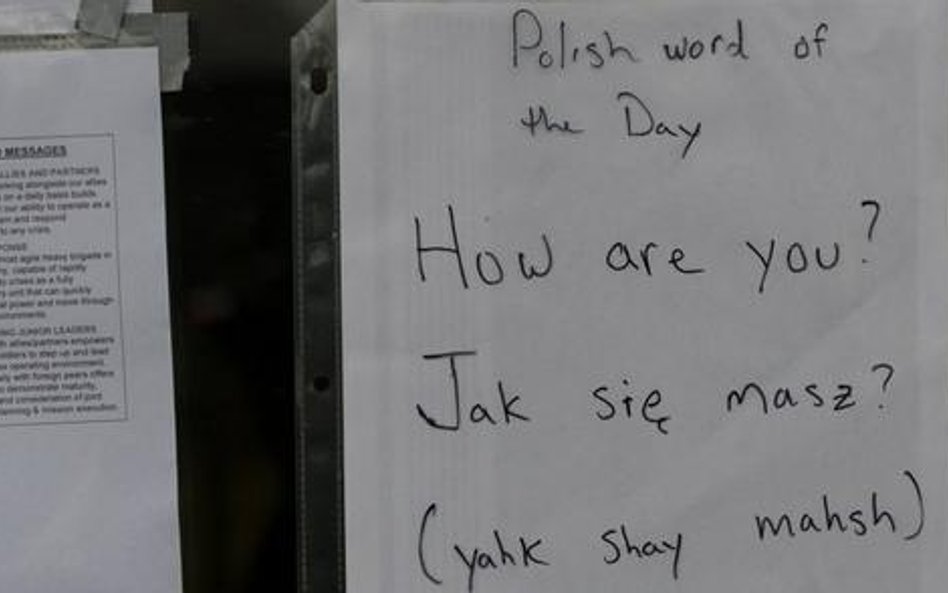 MESSAGES
ALLIES AND PARTNERS
alongside our allies
on a daily basis builds
our ability to operate as a
and respond
to any crisis.
most agile heavy brigade in
capable of rapidly
crises as a fully
unit that can quickly
power and move through
JUNIOR LEADERS
allies/partners empowers
to step up and lead
operating environment.
with foreign peers offers
demonstrate maturity,
and consideration of joint
planning & mission execution.
Polish word of
the Day
How are you?
Jak się masz?
(yahk shay mahsh)